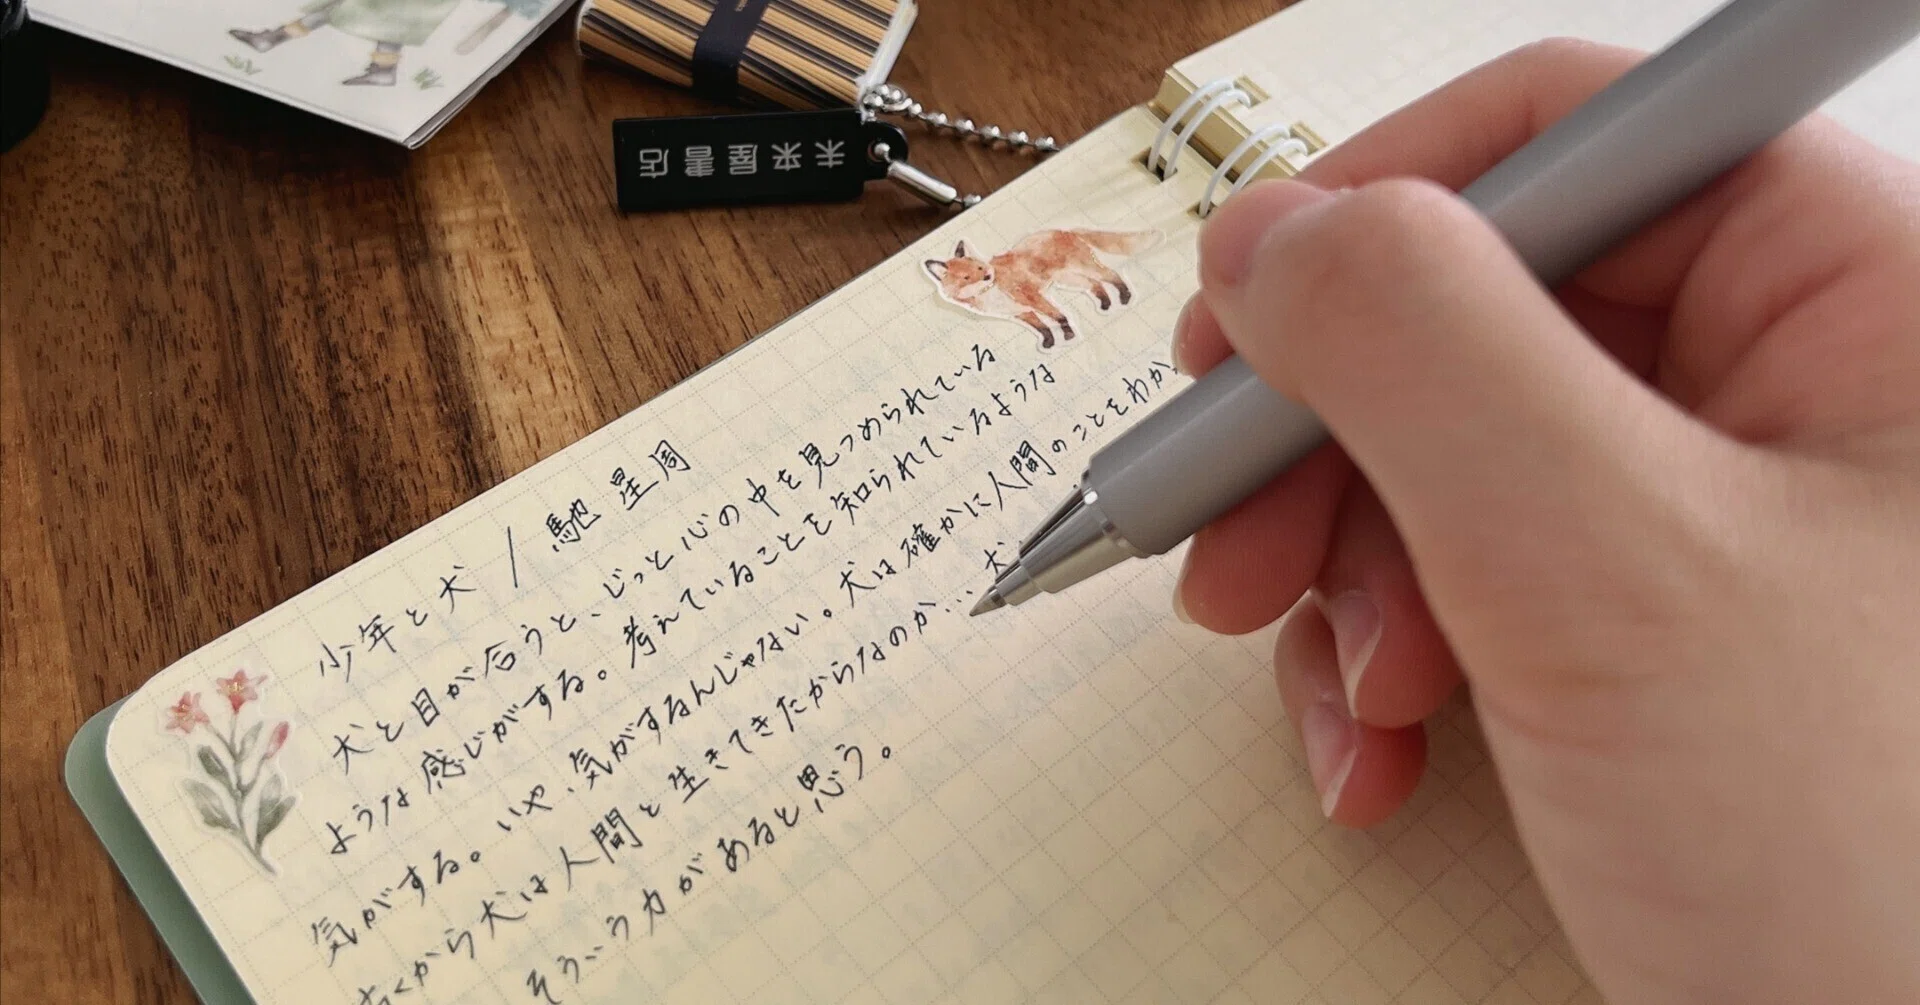 未来屋書店
少年と犬 / 馳星周
犬と目が合うと、じっと心の中を見つめられている
ような感じがする。考えていることを知られているような
気がする。いや、気がするんじゃない。犬は確かに人間のことをわか
古くから犬は人間と生きてきたからなのか…犬
そういう力があると思う。